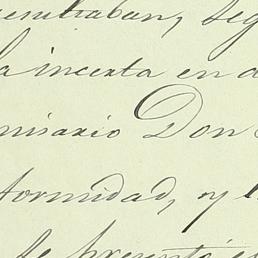 resultaban, seg
la incerta en a
misario Don
formidad, y l
Se presentó e